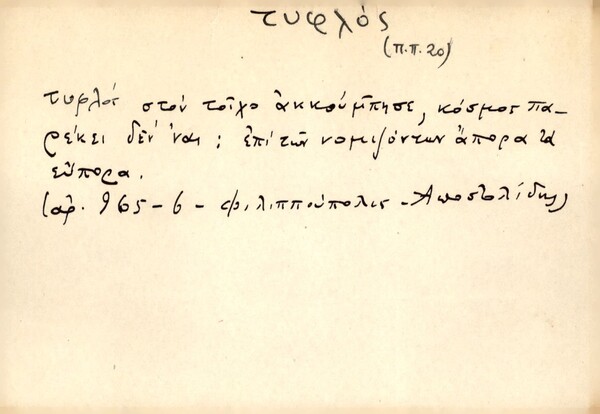 τυφλός
(π.π. 20)
τυφλός στὸν τοῖχο ἀκκούμπησε, κόσμος πα-
ρέκει δὲν ἔναι; ἐπὶ τῶν νομιζόντων ἄπορα τὰ
εὔπορα.
(ἀρ. 965-6 - Φιλιππούπολις - Ἀποστολίδης)